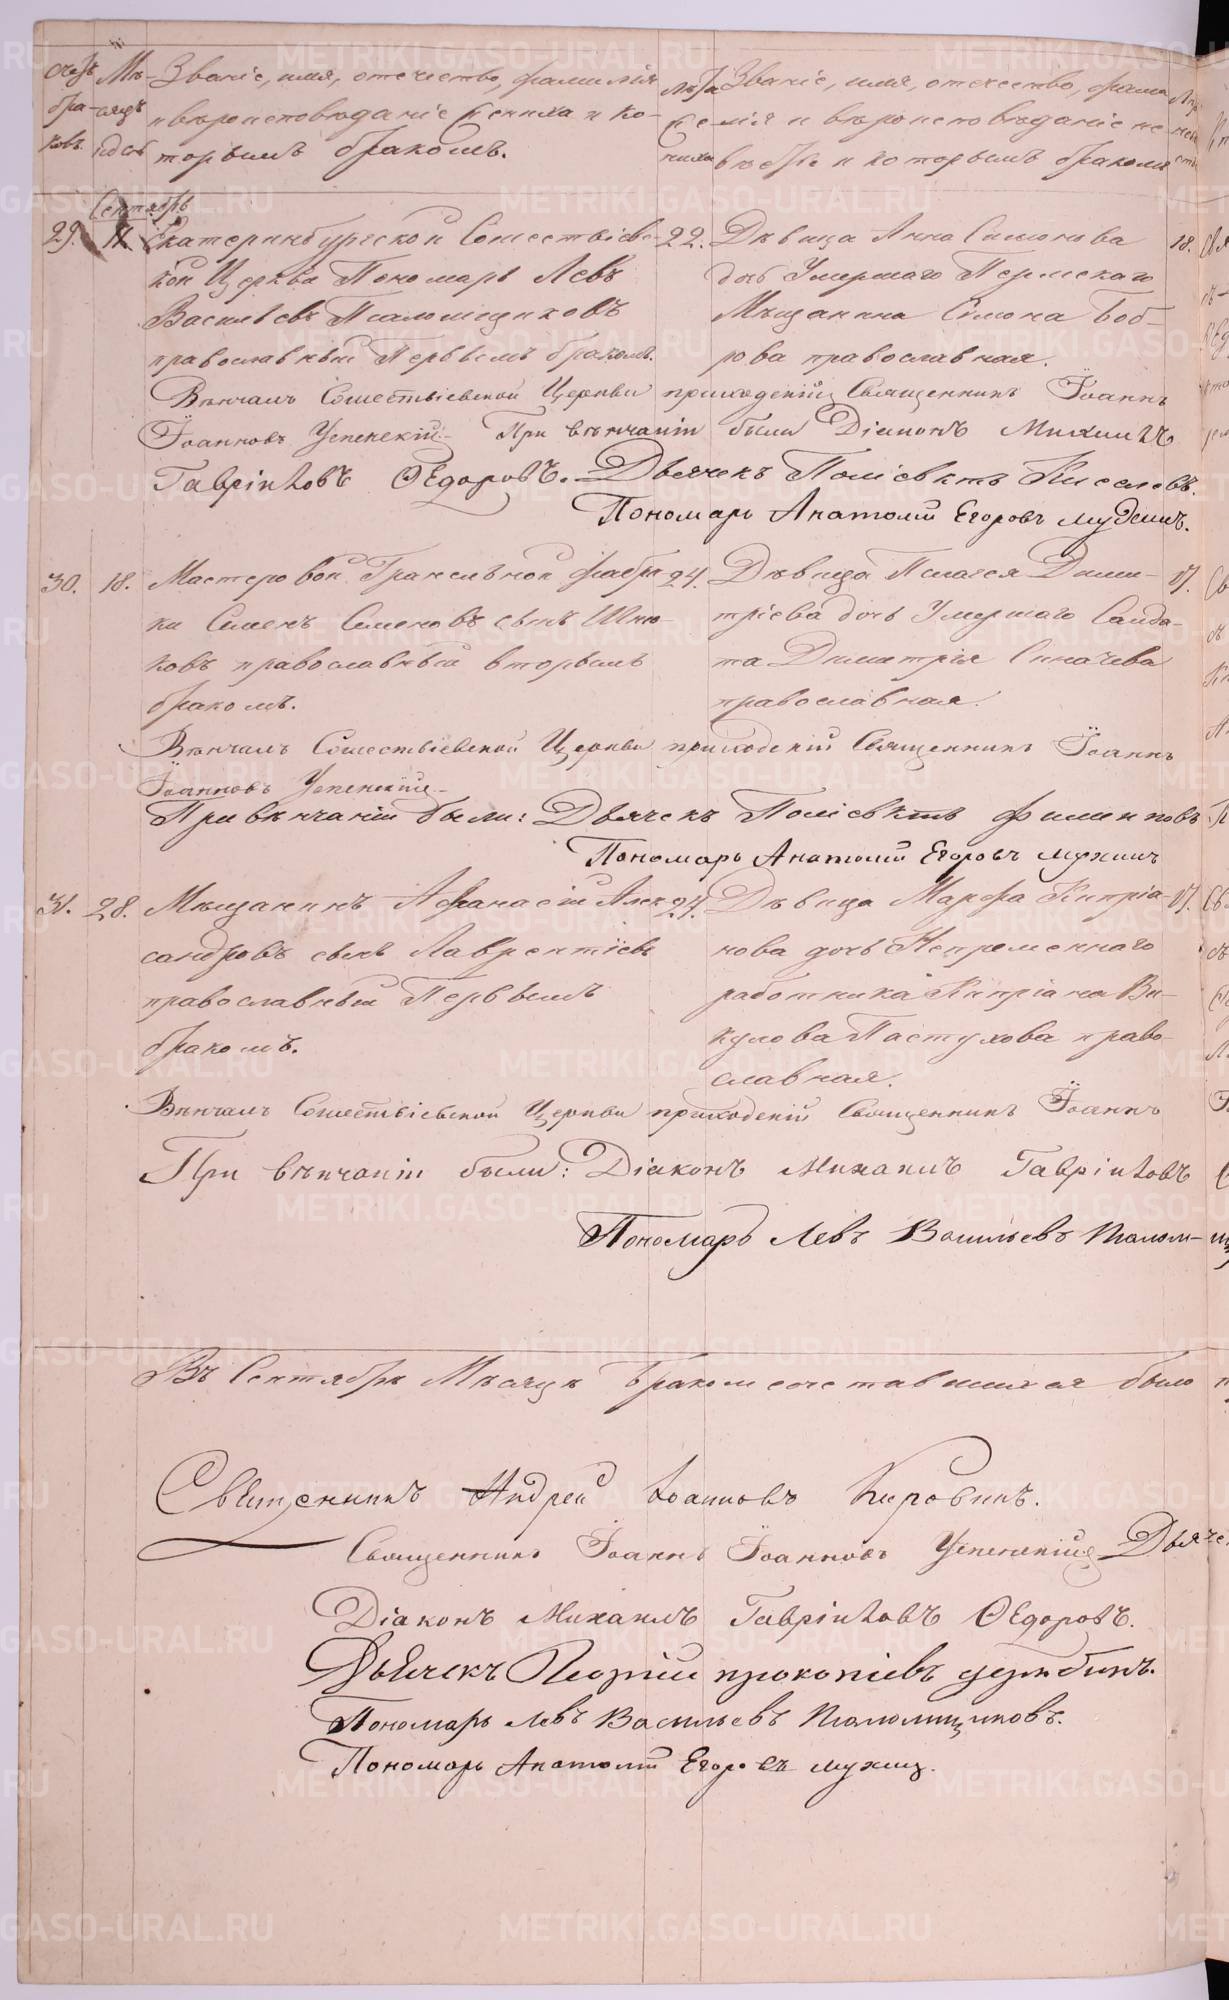 Счетъ бра-ковъ
Мѣ-сяцъ и день
Званіе, имя, отчество, фамилія
и вѣроисповѣданіе жениха и ко-
торымъ бракомъ.
Лѣта же-ниха
Званіе, имя, отчество, фами-
лія и вѣроисповѣданіе не-
вѣсты и которымъ бракомъ
Сентябрь
29. 11. Екатеринбургской Сошествіев-
ской Церкви Пономарь Левъ
Васильевъ Псаломщиковъ
православный Первымъ бракомъ.
22.
Дѣвица Анна Симонова
дочь Умершаго Пермскаго
Мѣщанина Симона Боб-
рова православная.
18.
Вѣнчалъ Сошествіевской Церкви приходскій Священникъ Іоаннъ
Іоанновъ Успенскій. При вѣнчаніи были Діаконъ Михаилъ
Гавріиловъ Ѳедоровъ. Дьячекъ Поліевктъ Киселевъ.
Пономарь Анатолій Егоровъ Мухинъ.
30. 18. Мастеровой Гранильной фабри-
ки Семенъ Семеновъ сынъ
ковъ православный вторымъ
бракомъ.
24.
Дѣвица Пелагея Дими-
тріева дочь Умершаго Салда-
та Димитрія Сипачева
православная.
17.
Вѣнчалъ Сошествіевской Церкви приходскій Священникъ Іоаннъ
Іоанновъ Успенскій.
При вѣнчаніи были: Дьячекъ Поліевктъ Филипповъ
Пономарь Анатолій Егоровъ Мухинъ
31. 28. Мѣщанинъ Афанасій Алек-
сандровъ сынъ Лаврентіевъ
православный Первымъ
бракомъ.
24.
Дѣвица Марфа Кипріа-
нова дочь Непременнаго
работника Кипріана Ви-
кулова Пастухова право-
славная.
17.
Вѣнчалъ Сошествіевской Церкви приходскій Священникъ Іоаннъ
При вѣнчаніи были: Діаконъ Михаилъ Гавріиловъ
Пономарь Левъ Васильевъ Псалом-
Въ Сентябрѣ Мѣсяцѣ бракомсочетавшихся было
Священникъ Андрей Іоанновъ Кировскихъ.
Священникъ Іоаннъ Іоанновъ Успенскій Дьяче
Діаконъ Михаилъ Гавріиловъ Ѳедоровъ.
Дьячекъ Георгій Прокопіевъ
Пономарь Левъ Васильевъ Псаломщиковъ.
Пономарь Анатолій Егоровъ Мухинъ.
METRIKI.GASO-URAL.RU